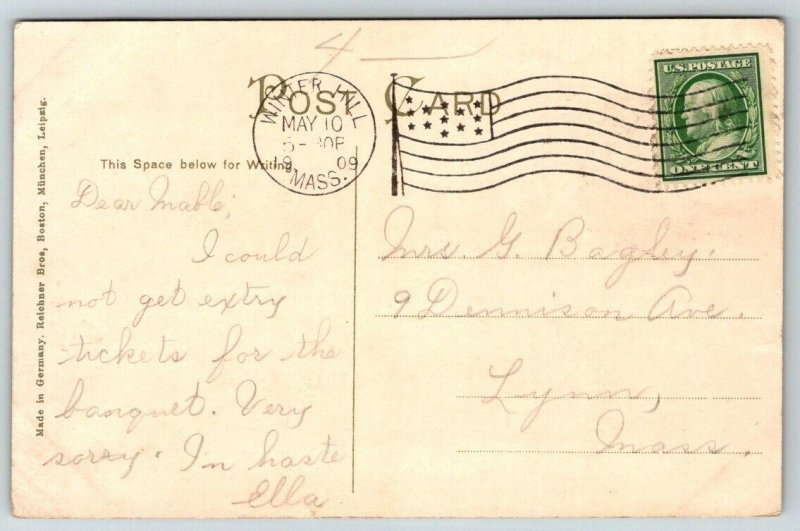 4
POST CARD
WINTER HILL
MAY 10
5-30P
19 09
MASS.
U.S. POSTAGE
ONE CENT
This Space below for Writing.
Made in Germany. Reichner Bros, Boston, München, Leipzig.
Dear Mable;
I could
not get extry
tickets for the
banquet. Very
sorry. In haste
Ella
Mrs. G. Bagley.
9 Dennison Ave.
Lynn,
Mass.